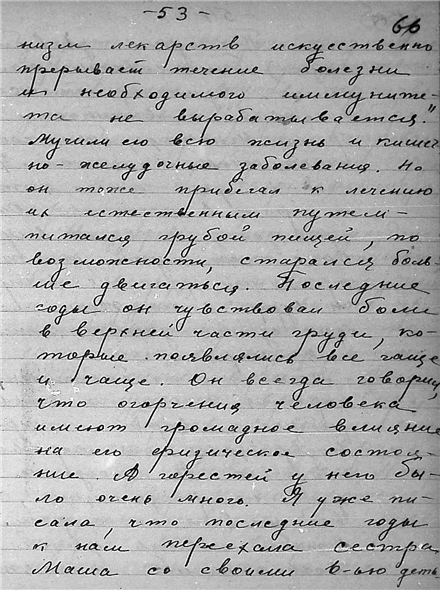 -53-
66
низм лекарств искусственно
прерывает течение болезни
и необходимого иммуните-
та не вырабатывается."
Мучили его всю жизнь и кишеч
но-желудочные заболевания. Но
он тоже прибегал к лечению
их естественным путем-
питался грубой пищей, по
возможности, старался боль-
ше двигаться. Последние
годы он чувствовал боли
в верхней части груди, ко-
торые появлялись все чаще
и чаще. Он всегда говорил,
что огорчения человека
имеют громадное влияние
на его физическое состоя-
ние. А горестей у него бы-
ло очень много. Я уже пи-
сала, что последние годы
к нам переехала сестра
Маша со своими 6-ью деть